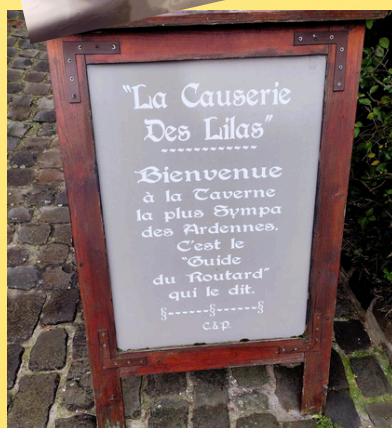 "La Causerie
Des Lilas"
~~~~~~~~~~~~
Bienvenue
à la Taverne
la plus Sympa
des Ardennes.
C'est le
"Guide
du Routard"
qui le dit.
§------§------§
C.&P.